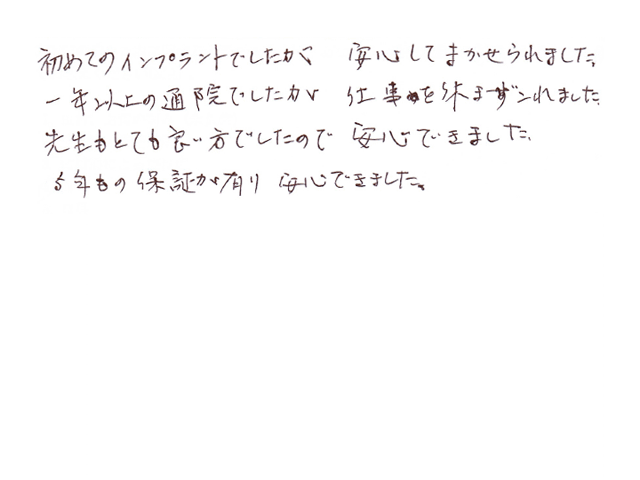 初めてのインプラントでしたが 安心してまかせられました。
一年以上の通院でしたが 仕事を休まず これました。
先生もとても良い方でしたので 安心できました。
5年もの保証が有り 安心できました。